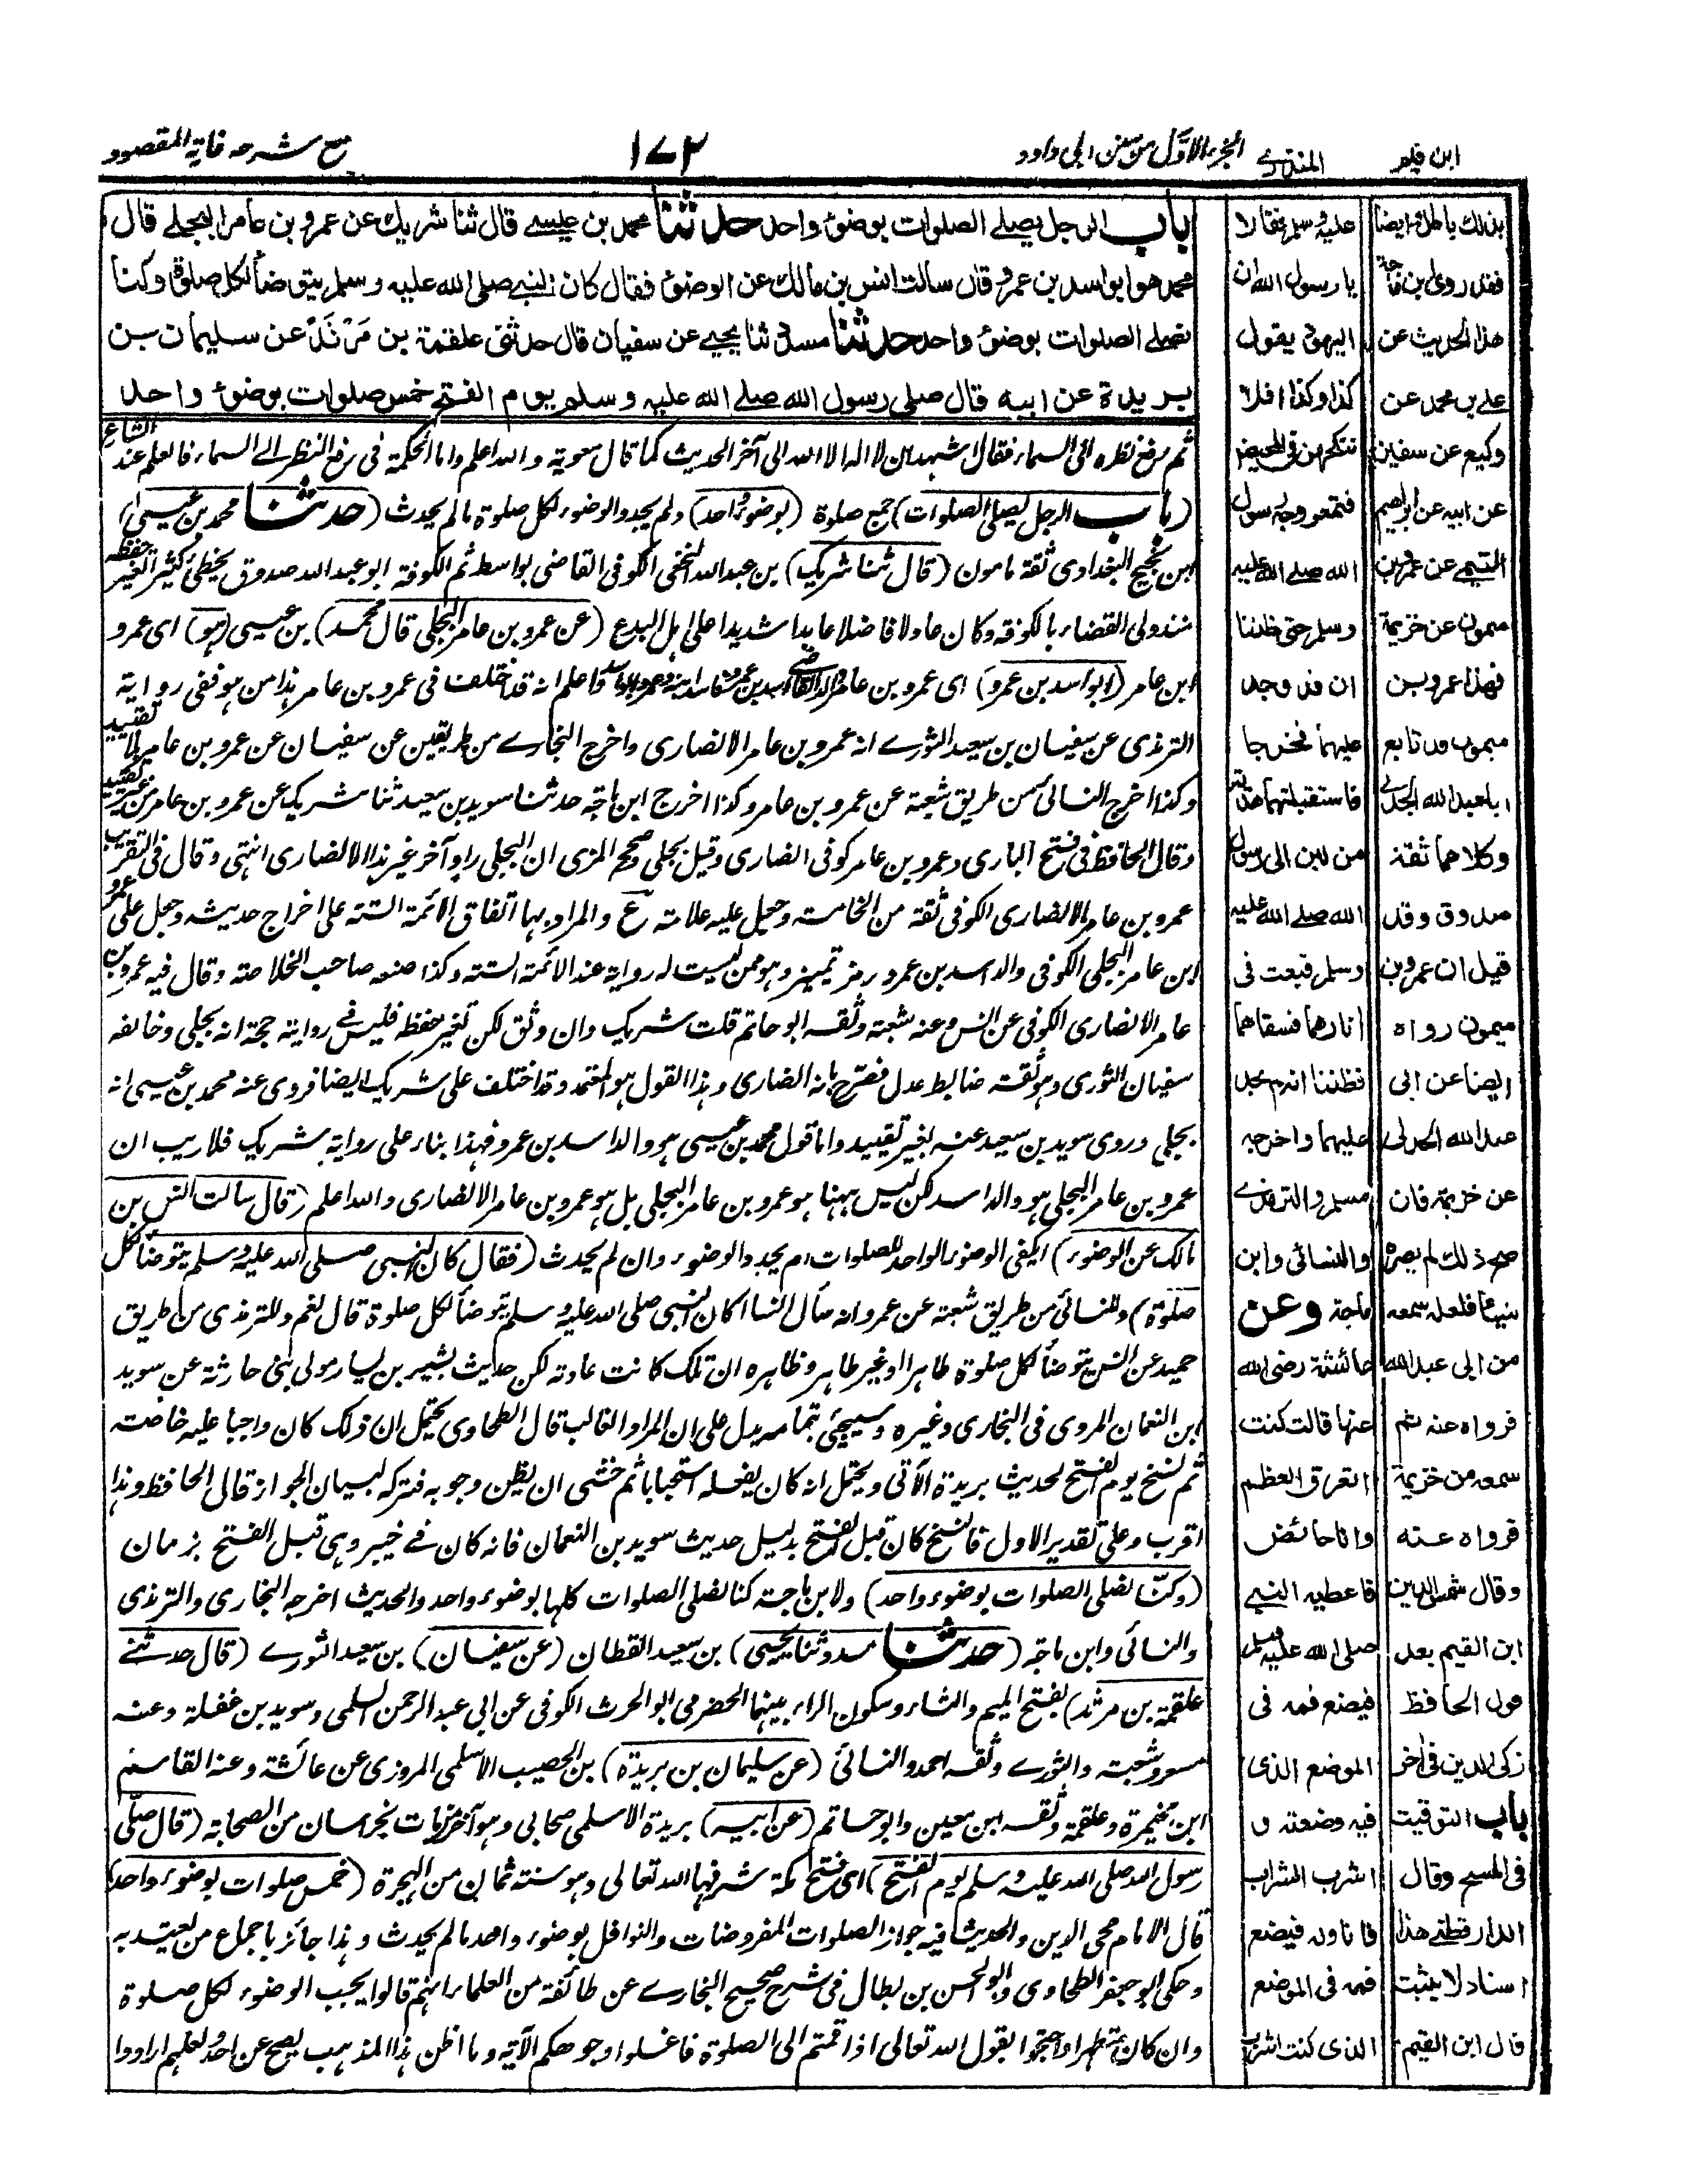 ابن قيم
المنذري
الجزء الاول من سنن ابي داود
١٧٢
مع شرحه غاية المقصود
باب الرجل يصلے الصلوات بوضوء واحد حدثنا محمد بن عيسے قال ثنا شريك عن عمرو بن عامر البجلے قال
محمد هو ابو اسد بن عمرو قال سالت انس بن مالك عن الوضوء فقال كان النبے صلى الله عليه وسلم يتوضأ لكل صلوة وكنا
نصلے الصلوات بوضوء واحد حدثنا مسدد ثنا يحيے عن سفيان قال حدثنى علقمة بن مَرْثَدٍ عن سليمان بن
بريدة عن ابيه قال صلى رسول الله صلے الله عليه وسلم يوم الفتح خمس صلوات بوضوء واحد
ثم رفع نظره الى السماء فقال اشهد ان لا اله الا الله الى آخر الحديث كما قال معوية والله اعلم واما الحكمة فى رفع النظر الے السماء فالعلم عند الشارع
(باب الرجل يصلى الصلوات) جمع صلوة (بوضوء واحد) ولم يجدد الوضوء لكل صلوة ما لم يحدث (حدثنا محمد بن عيسى)
ابن نجيح البغدادى ثقة مامون (قال ثنا شريك) بن عبدالله النخعى الكوفى القاضى بواسط ثم الكوفة ابو عبدالله صدوق يخطئ كثيرا تغير حفظه
منذ ولى القضاء بالكوفة وكان عادلا فاضلا عابدا شديدا على اهل البدع (عن عمرو بن عامر البجلى قال محمد) بن عيسى (هو) اى عمرو
ابن عامر (ابو اسد بن عمرو) اى عمرو بن عامر واعلم انه قد اختلف فى عمرو بن عامر هذا من هو ففى رواية
الترمذى عن سفيان بن سعيد الثورے انه عمرو بن عامر الانصارى واخرج البخارے من طريقين عن سفيان عن عمرو بن عامر بلا تقييد
وكذا اخرج النسائى من طريق شعبة عن عمرو بن عامر وكذا اخرج ابن ماجة حدثنا سويد بن سعيد ثنا شريك عن عمرو بن عامر من غير تقييد
وقال الحافظ فى فتح البارى وعمرو بن عامر كوفى انصارى وقيل بجلى وصحح المزى ان البجلى راو آخر غير هذا الانصارى انتهى وقال فى التقريب
عمرو بن عامر الانصارى الكوفى ثقة من الخامسة وجعل عليه علامة ع والمراد بها اتفاق الائمة الستة على اخراج حديثه وجعل على عمرو
ابن عامر البجلى الكوفى والد اسد بن عمرو رمز تمييز وهو ممن ليست له رواية عند الائمة الستة وكذا صنعه صاحب الخلاصة وقال فيه عمرو بن
عامر الانصارى الكوفى عن انس وعنه شعبة وثقه ابو حاتم قلت شريك وان وثق لكن تغير حفظه فليس فے روايته حجة انه بجلى وخالفه
سفيان الثورى وهو ثقة ضابط عدل فصرح بانه انصارى وهذا القول هو المعتمد وقد اختلف على شريك ايضا فروى عنه محمد بن عيسى انه
بجلى وروى سويد بن سعيد عنه بغير تقييد واما قول محمد بن عيسى هو والد اسد بن عمرو فهذا بناء على رواية شريك فلا ريب ان
عمرو بن عامر البجلى هو والد اسد لكن ليس ههنا هو عمرو بن عامر البجلى بل هو عمرو بن عامر الانصارى والله اعلم (قال سالت انس بن
مالك عن الوضوء) ايكفى الوضوء الواحد للصلوات ام يجدد الوضوء وان لم يحدث (فقال كان النبى صلى الله عليه وسلم يتوضأ لكل
صلوة) وللنسائى من طريق شعبة عن عمرو انه سأل انسا اكان النبى صلى الله عليه وسلم يتوضأ لكل صلوة قال نعم وللترمذى من طريق
حميد عن انس يتوضأ لكل صلوة طاهرا او غير طاهر وظاهره ان تلك كانت عادته لكن حديث بشير بن يسار مولى بنى حارثة عن سويد
ابن النعمان المروى فى البخارى وغيره وسيجئى بتمامه يدل على ان المراد الغالب قال الطحاوى يحتمل ان ذلك كان واجبا عليه خاصة
ثم نسخ يوم الفتح لحديث بريدة الآتى ويحتمل انه كان يفعله استحبابا ثم خشى ان يظن وجوبه فتركه لبيان الجواز قال الحافظ وهذا
اقرب وعلى تقدير الاول فالنسخ كان قبل الفتح بدليل حديث سويد بن النعمان فانه كان فے خيبر وهى قبل الفتح بزمان
(وكنا نصلى الصلوات بوضوء واحد) ولابن ماجة كنا نصلى الصلوات كلها بوضوء واحد والحديث اخرجه البخارى والترمذى
والنسائى وابن ماجة (حدثنا مسدد ثنا يحيى) بن سعيد القطان (عن سفيان) بن سعيد الثورے (قال حدثنے
علقمة بن مرثد) بفتح الميم والثاء وسكون الراء بينهما الحضرمى ابو الحرث الكوفى عن ابى عبد الرحمن السلمى وسويد بن غفلة وعنه
مسعر وشعبة والثورے وثقه احمد والنسائى (عن سليمان بن بريدة) بن الحصيب الاسلمى المروزى عن عائشة وعنه القاسم
ابن مخيمرة وعلقمة وثقه ابن معين وابو حاتم (عن ابيه) بريدة الاسلمى صحابى وهو آخر من مات بخراسان من الصحابة (قال صلى
رسول الله صلى الله عليه وسلم يوم الفتح) اى فتح مكة شرفها الله تعالى وهو سنة ثمان من الهجرة (خمس صلوات بوضوء واحد)
قال الامام محى الدين والحديث فيه جواز الصلوات المفروضات والنوافل بوضوء واحد ما لم يحدث وهذا جائز باجماع من يعتد به
وحكى ابو جعفر الطحاوى وابو الحسن بن بطال فى شرح صحيح البخارے عن طائفة من العلماء انهم قالوا يجب الوضوء لكل صلوة
وان كان متطهرا واحتجوا بقول الله تعالى اذا قمتم الى الصلوة فاغسلوا وجوهكم الآية وما اظن هذا المذهب يصح عن احد ولعلهم ارادوا
عليه وسلم فقالا
يا رسول الله ان
اليهود يقول
كذا وكذا افلا
ننكحهن فى المحيض
فتمعر وجه رسول
الله صلے الله عليه
وسلم حتى ظننا
ان قد وجد
عليهما فخرجا
فاستقبلتهما هدية
من لبن الى رسول
الله صلے الله عليه
وسلم فبعث فى
اثارهما فسقاهما
فظننا انه لم يجد
عليهما واخرجه
مسلم والترمذے
والنسائى وابن
ماجة وعن
عائشة رضى الله
عنها قالت كنت
اتعرق العظم
وانا حائض
فاعطيه النبے
صلى الله عليه وسلم
فيضع فمه فى
الموضع الذى
فيه وضعته و
اشرب الشراب
فاناوله فيضع
فمه فى الموضع
الذى كنت اشرب
بذلك باطل وايضا
فقد روى ابن ماجة
هذا الحديث عن
علے بن محمد عن
وكيع عن سفين
عن ابيه عن ابراهيم
التيمے عن عمرو بن
ميمون عن خزيمة
فهذا عمرو بن
ميمون قد تابع
ابا عبد الله الجدلے
وكلاهما ثقة
صدوق وقد
قيل ان عمرو بن
ميمون رواه
ايضا عن ابى
عبد الله الجدلى
عن خزيمة فان
صح ذلك لم يضره
فلعله سمعه
من ابى عبد الله
فرواه عنه ثم
سمعه من خزيمة
فرواه عنه
وقال شمس الدين
ابن القيم بعد
قول الحافظ
زكى الدين فى اخر
باب التوقيت
فى المسح وقال
الدارقطنے هذا
اسناد لا يثبت
قال ابن القيم